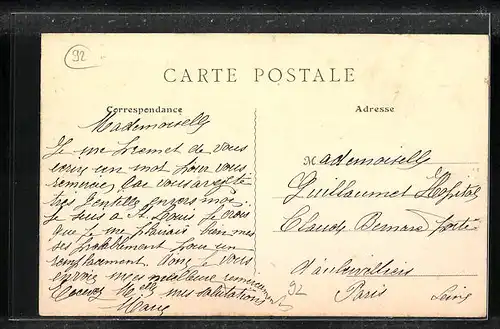 92
CARTE POSTALE
Correspondance
Mademoiselle
Je me permet de vous
ecrir un mot pour vous
remercier car vous avez été
très gentille envers moi
je suis a St Louis je crois
que je me plairais bien mes
ses probablement pour un
remplacement. donc je vous
envoie mes meilleure remerciements
Recevez Melle mes salutations
Marie
Adresse
Mademoiselle
Guillaumet Hopital
Claude Bernard porte
d'aubervilliers
92 Paris Seine